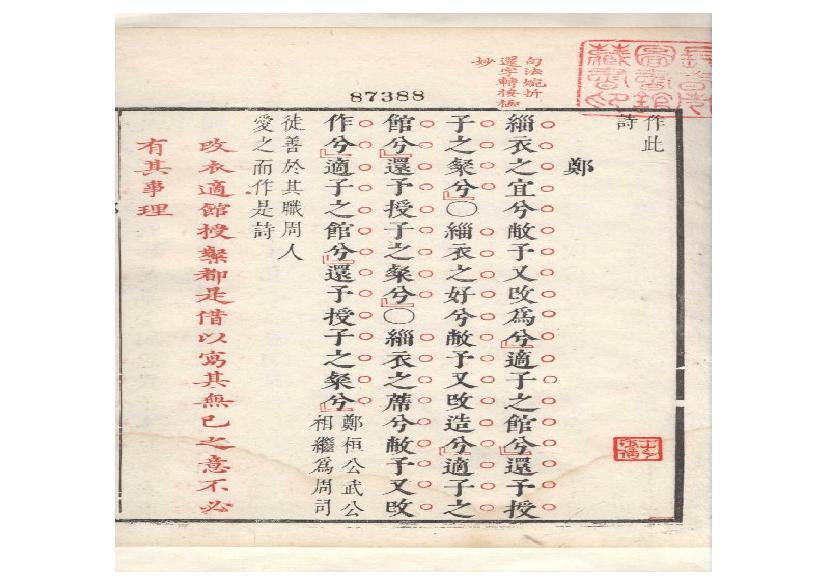 87388
句法婉折
還字轉接極
妙
作此
詩
鄭
緇衣之宜兮敝予又改爲兮適子之館兮還予授
子之粲兮○緇衣之好兮敝予又改造兮適子之
館兮還予授子之粲兮○緇衣之蓆兮敝予又改
作兮適子之館兮還予授子之粲兮鄭桓公武公
相繼爲周司
徒善於其職周人
愛之而作是詩
改衣適館授粲都是借以寫其無已之意不必
有其事理